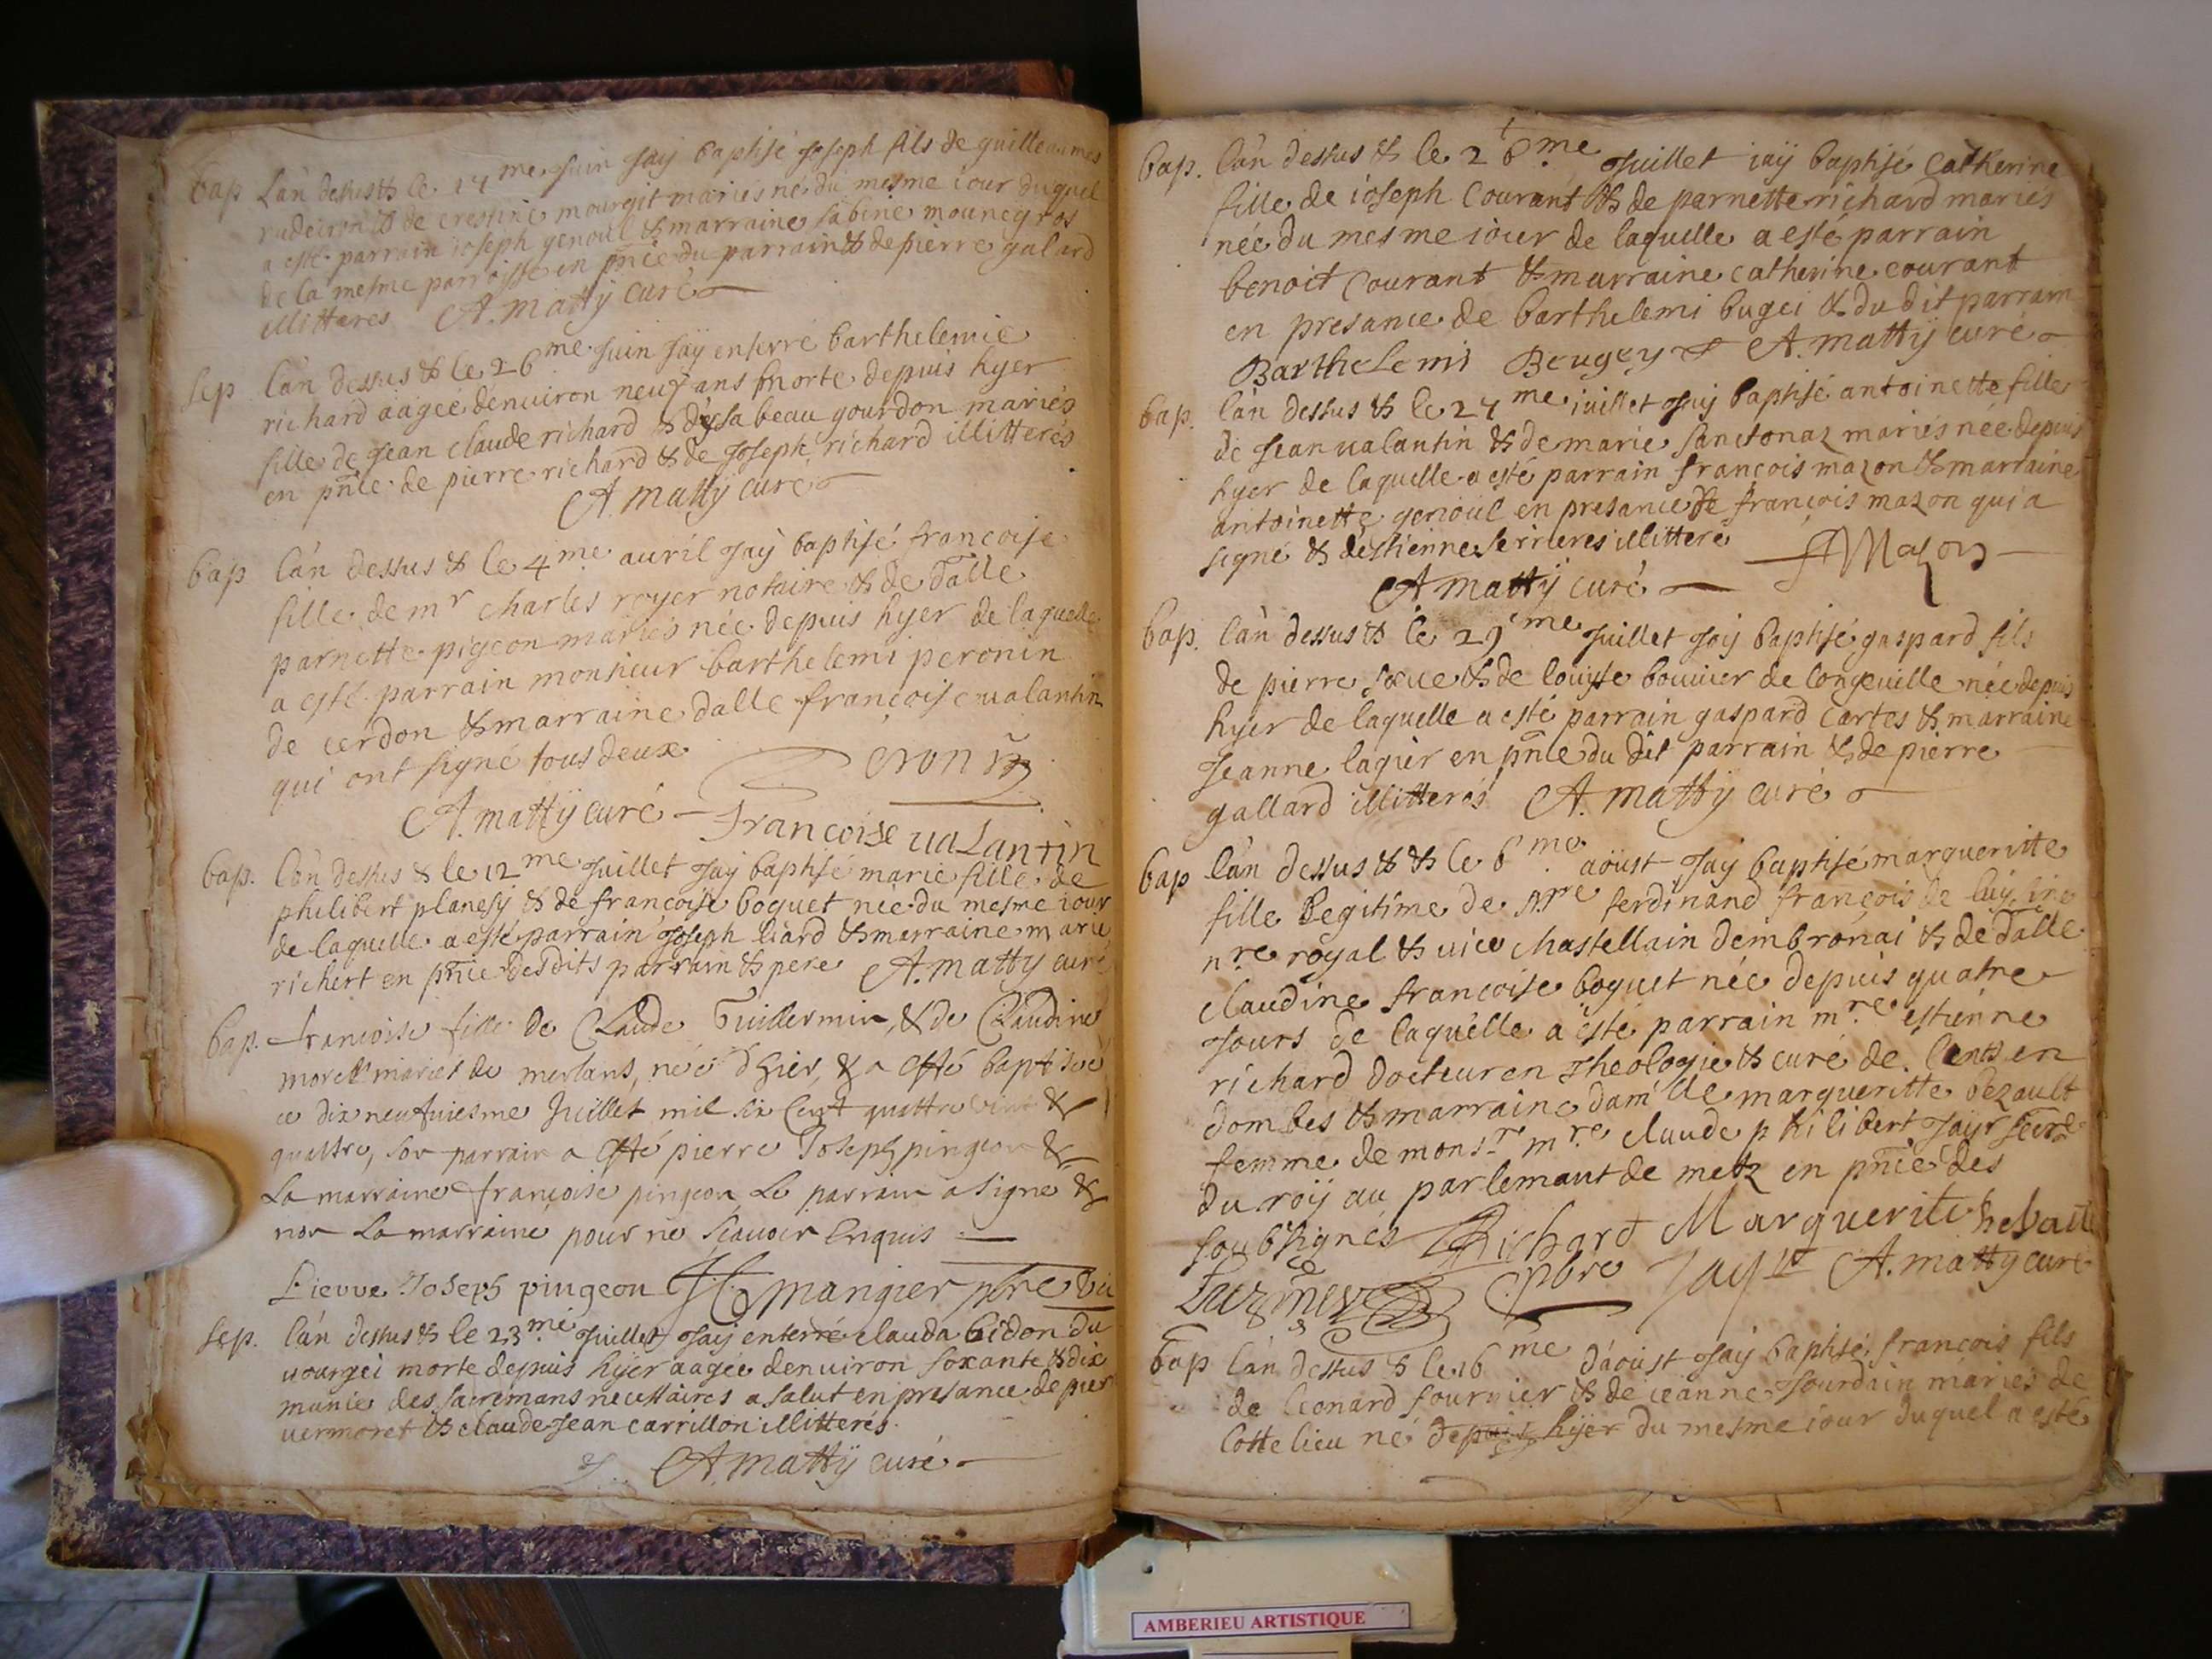 bap Lan dessus & le 14me Juin Jaÿ baptisé Joseph fils de guilleaumes
radeiron & de crestine mourgit mariés né du mesme iour duquel
a esté parrain ioseph genoul & marraine sabine mounegros
de la mesme parroisse en pnce du parrain & de pierre galard
illitteres A. mattÿ curé
sep lan dessus & le 26me Juin Jaÿ enterré barthelemie
richard aagée denuiron neuf ans morte depuis hyer
fille de Jean claude richard & dysabeau gourdon mariés
en pnce de pierre richard & de Joseph richard illitterés
A. mattÿ curé
bap lan dessus & le 4me auril Jaÿ baptisé francoise
fille de mr charles royer notaire & de dalle
parnette pigeon mariés née depuis hyer de laquelle
a esté parrain monsieur barthelemi peronin
de cerdon & marraine dalle francoise ualantin
qui ont signé tous deux
A. mattÿ curé francoise uaLantin
bap. lan dessus & le 12me Juillet Jaÿ baptisé marie fille de
philibert planesy & de francoise boquet née du mesme iour
de laquelle a esté parrain Joseph liard & marraine marie
richert en pnce des dits parrain & pere A. mattÿ curé
bap. francoise fille de Claude Guillermin, & de Claudine
morel mariés de merlans, née dhier, & a esté baptisée
ce dix neufuiesme Juillet mil six Cent quattre vint &
quattre, son parrain a esté pierre Joseph pingeon &
La marraine francoise pingeon Le parrain a signé &
non La marraine pour ne scauoir Enquis
Pierre Joseph pingeon mangier pbre vic
sep. lan dessus & le 23me Juillet Jaÿ enterré clauda bidon du
uourgei morte depuis hÿer aagée denuiron soxante & dix
munie des sacremans necessaires a salut en presance de pier
uermoret & claude Jean carrillon illitterés.
A. mattÿ curé
bap. lan dessus & le 26me Juillet iaÿ baptisé catherine
fille de ioseph courant & de parnette richard mariés
née du mesme iour de laquelle a esté parrain
benoit courant & marraine catherine courant
en presance de barthelemi bugei & du dit parrain
Barthelemi Beugey A. mattÿ curé
bap. lan dessus & le 27me iuillet Jaÿ baptisé antoinette fille
de Jean ualantin & de marie sanctonaz mariés née depuis
hyer de laquelle a esté parrain françois mazon & marraine
antoinette genoul en presance de françois mazon qui a
signé & destienne serrieres illitteré Mazon
A mattÿ curé
bap. lan dessus & le 29me Juillet Jaÿ baptisé gaspard fils
de pierre & de louyse bouuier de longeuille née depuis
hyer de laquelle a esté parrain gaspard cartes & marraine
Jeanne lagier en pnce du dit parrain & de pierre
gallard illitterés A. mattÿ curé
bap lan dessus & & le 6me aoust Jaÿ baptisé margueritte
fille legitime de mre ferdinand françois de luysine
nre royal & uice chastellain dembronai & de dalle
claudine francoise boquet née depuis quatre
Jours de laquelle a esté parrain mre estienne
richard docteur en Theologie & curé de lents en
dombes & marraine damlle margueritte bezault
femme de monsr mre claude philibert Jaÿr secre
du roÿ au parlemant de metz en pnce des
soubsignés Richard Marguerite besault
pbre Jaÿr A. mattÿ curé
bap lan dessus & le 16me daoust Jaÿ baptisé françois fils
de leonard fournier & de ieanne Jourdain mariés de
Cottelieu né depuis hyer du mesme iour duquel a esté
AMBERIEU ARTISTIQUE